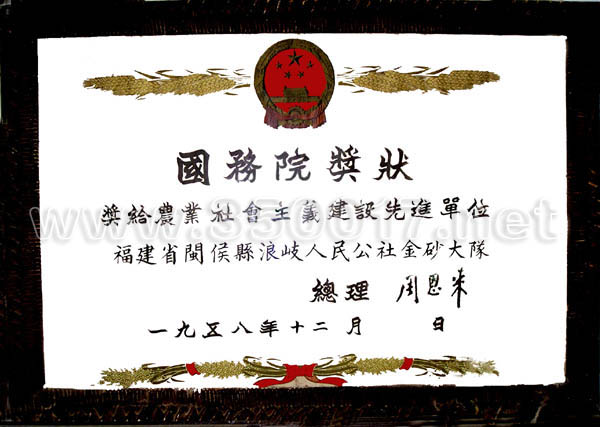 國務院獎狀
獎給農業社會主義建設先進單位
福建省閩侯縣浪岐人民公社金砂大隊
總理 周恩來
一九五八年十二月 日